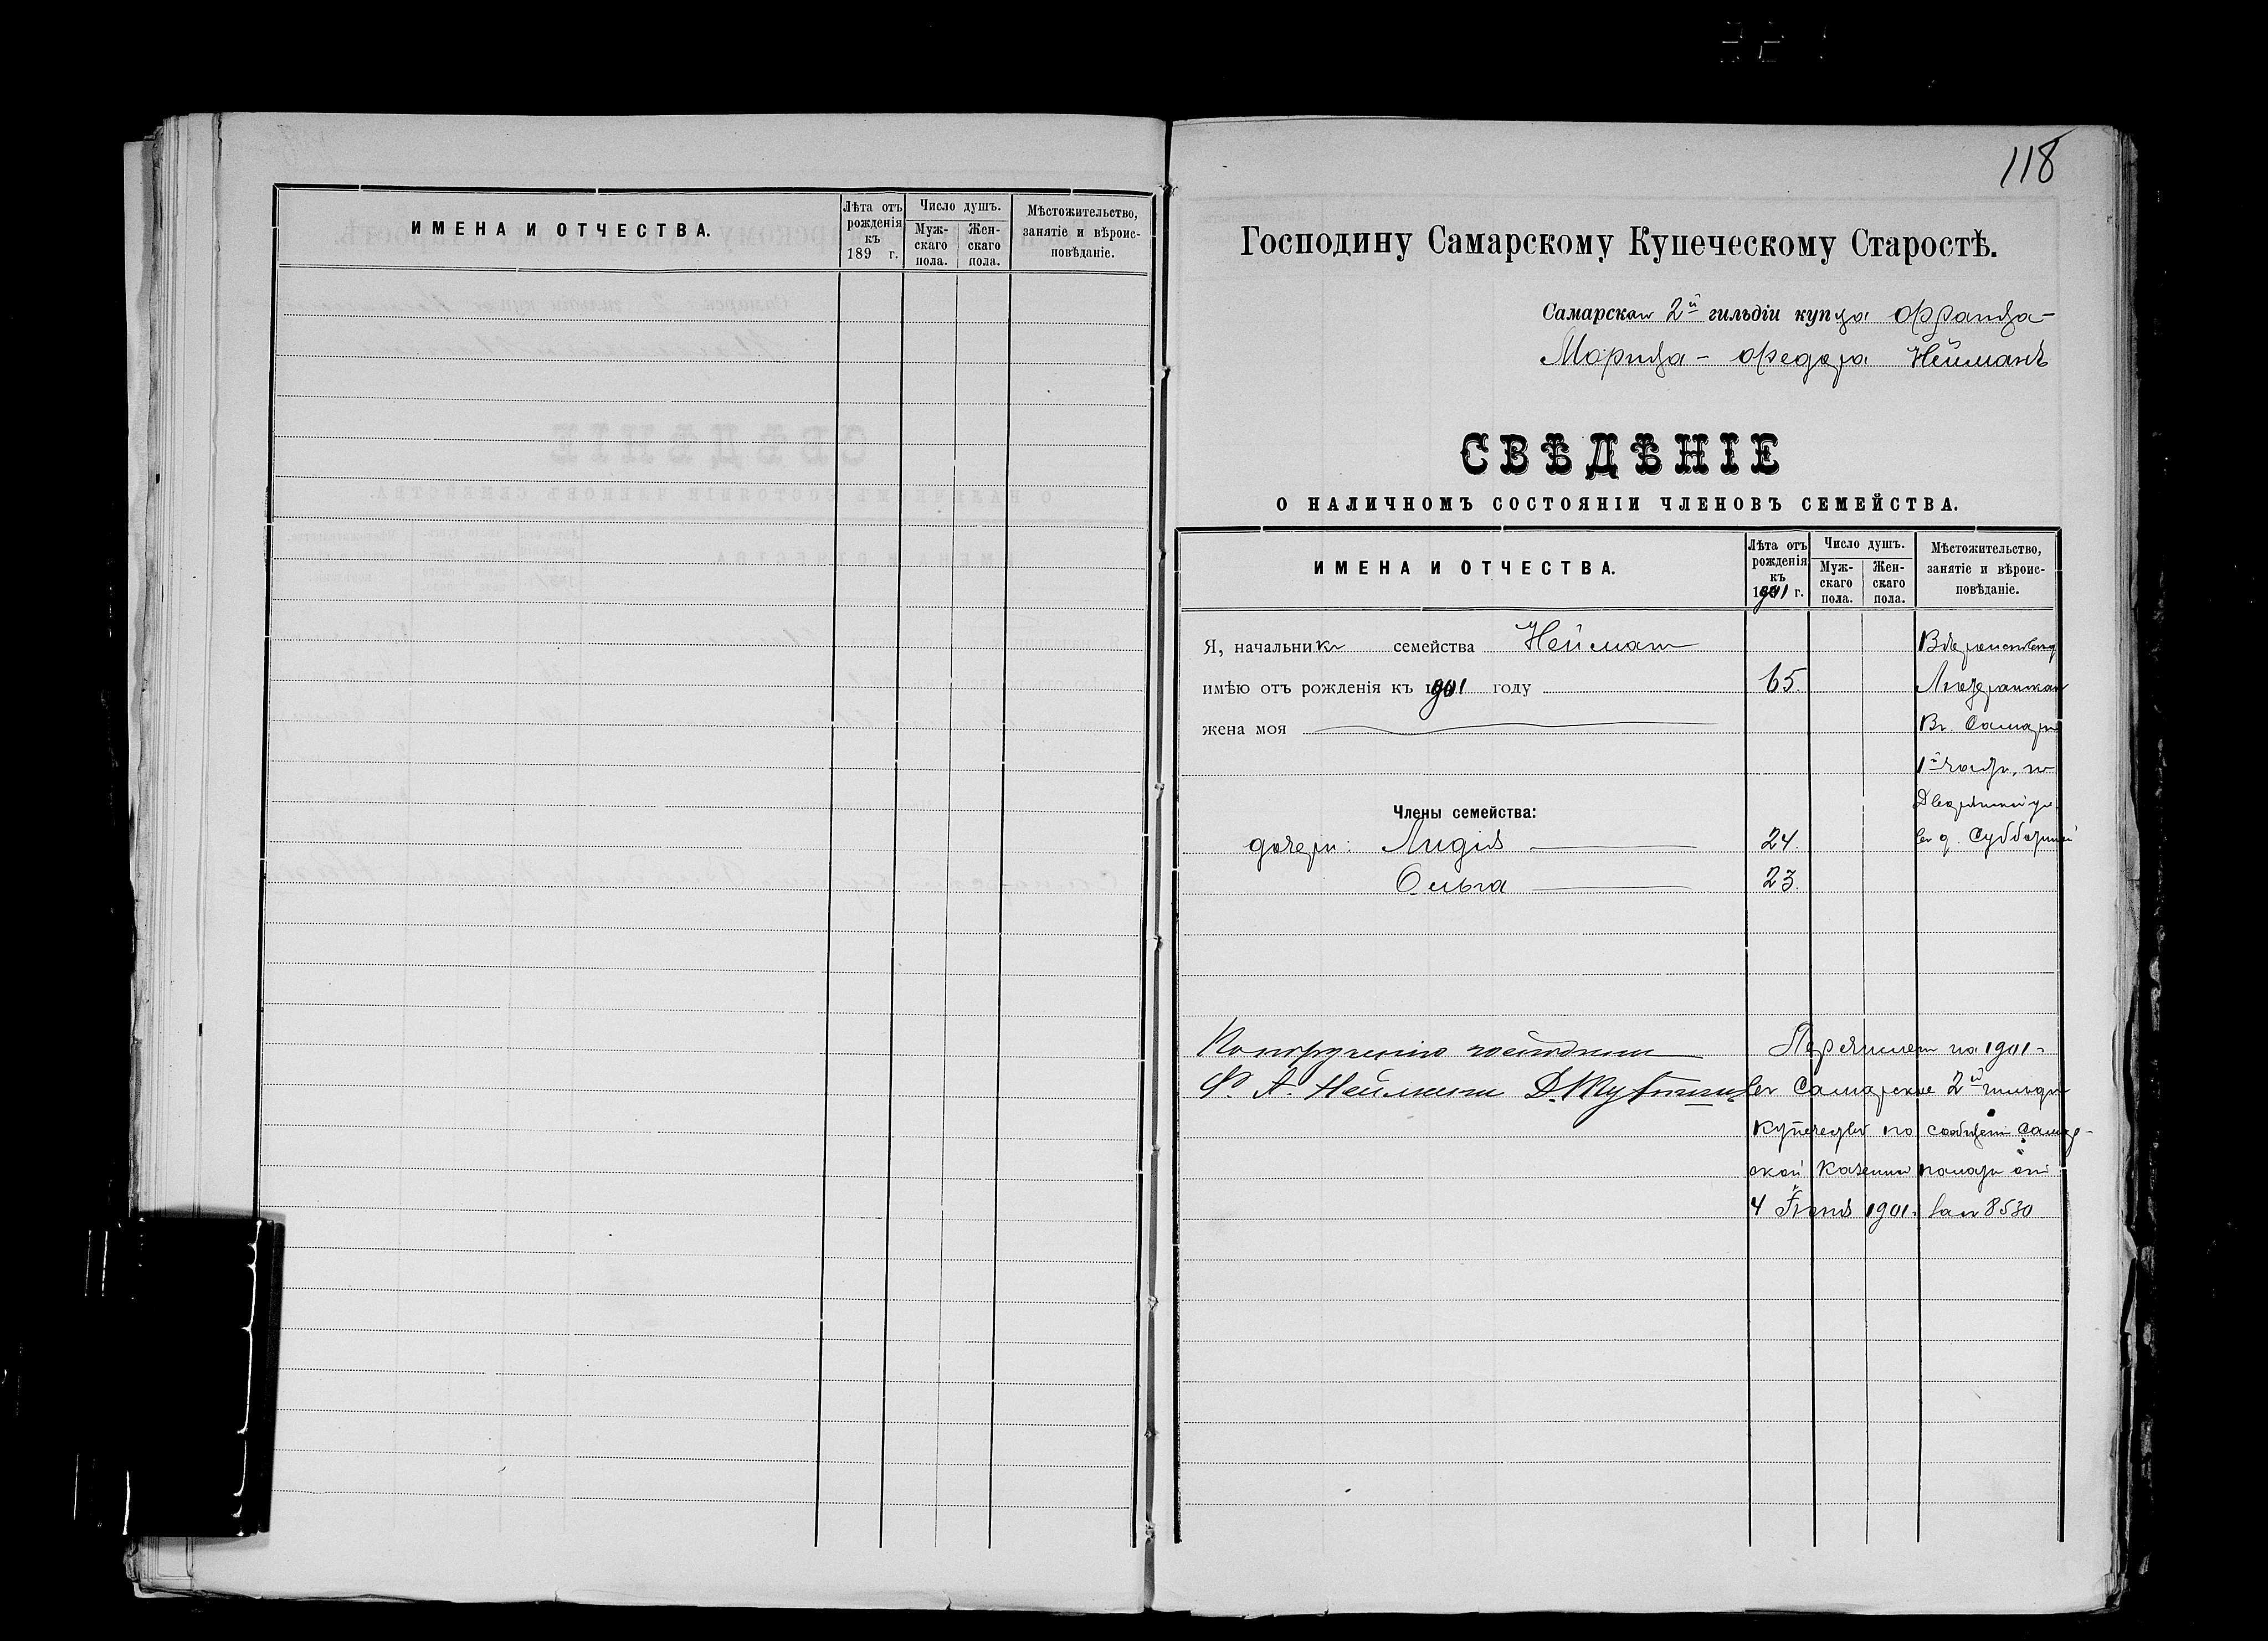 ИМЕНА И ОТЧЕСТВА.
Лѣта отъ рожденія къ 189 г.
Число душъ.
Мужскаго пола.
Женскаго пола.
Мѣстожительство, занятіе и вѣроисповѣданіе.
118
Господину Самарскому Купеческому Старостѣ.
Самарскаго 2й гильдіи купца Франца-
Морица-Федора Нейманъ
СВѢДѢНІЕ
О НАЛИЧНОМЪ СОСТОЯНІИ ЧЛЕНОВЪ СЕМЕЙСТВА.
ИМЕНА И ОТЧЕСТВА.
Лѣта отъ рожденія къ 1901 г.
Число душъ.
Мужскаго пола.
Женскаго пола.
Мѣстожительство, занятіе и вѣроисповѣданіе.
Я, начальникъ семейства Нейманъ
имѣю отъ рожденія къ 1901 году 65.
жена моя
Въ Самарѣ
1й части, по
Дворянской ул.
Члены семейства:
въ д. Субботиной
дочери: Лидія 24.
Ольга 23.
По порученію
Ф. А. Неймана Д.
Перечисленъ на 1901
въ Самарское 2й гильдіи
купечество по сообщенію Самар-
ской Казенной палаты отъ
4 1901 за № 8530